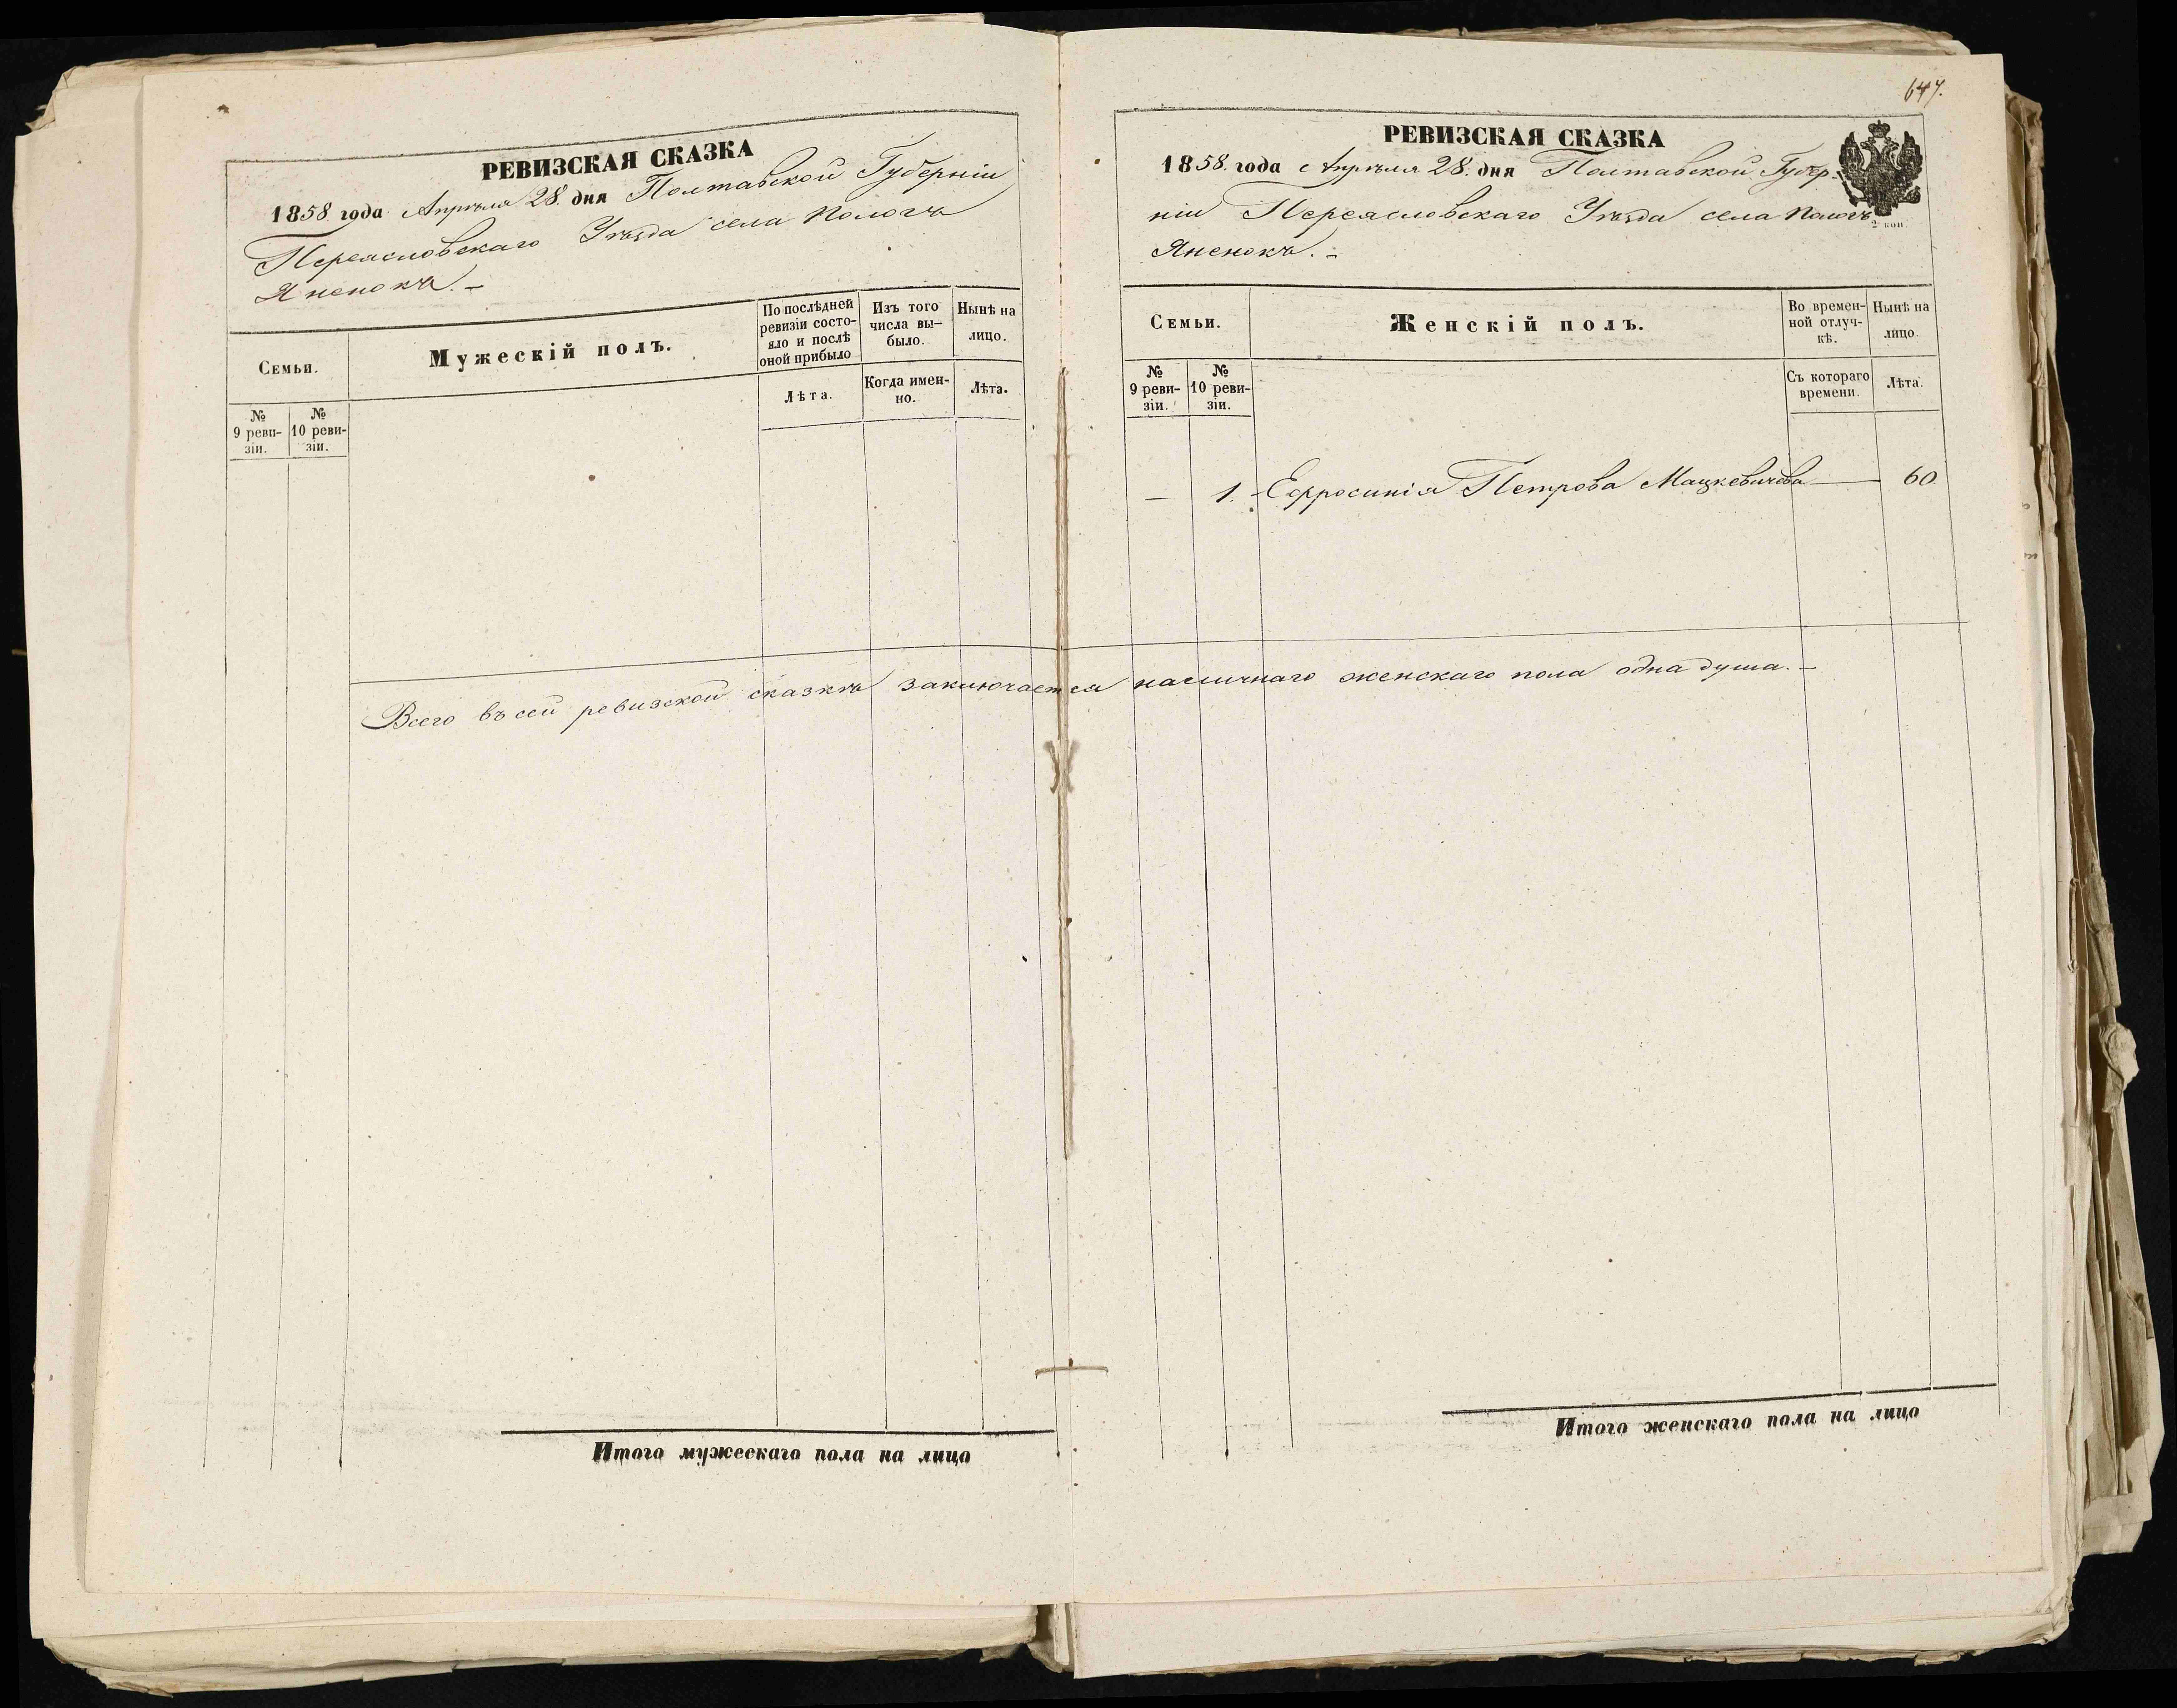 РЕВИЗСКАЯ СКАЗКА
1858 года Апрѣля 28. дня Полтавской Губерніи
Переясловскаго Уѣзда села Пологъ
Яненокъ. –
Семьи.
Мужескій полъ.
По послѣдней ревизіи состояло и послѣ оной прибыло
Изъ того числа вы– было.
Нынѣ на лицо.
№ 9 реви- зіи.
№ 10 реви- зіи.
Лѣта.
Когда имен- но.
Лѣта.
Всего въ сей ревизской сказкѣ заключается наличнаго женскаго пола одна душа. –
Итого мужескаго пола на лицо
647.
РЕВИЗСКАЯ СКАЗКА
1858. года Апрѣля 28. дня Полтавской Губер-
ніи Переясловскаго Уѣзда села Пологъ
2 коп
Яненокъ. –
Семьи.
Женскій полъ.
Во времен- ной отлуч- кѣ.
Нынѣ на лицо.
№ 9 реви- зіи.
№ 10 реви- зіи.
Съ котораго времени.
Лѣта.
– 1. Ефросинія Петрова Мацкевичева — 60.
Итого женскаго пола на лицо